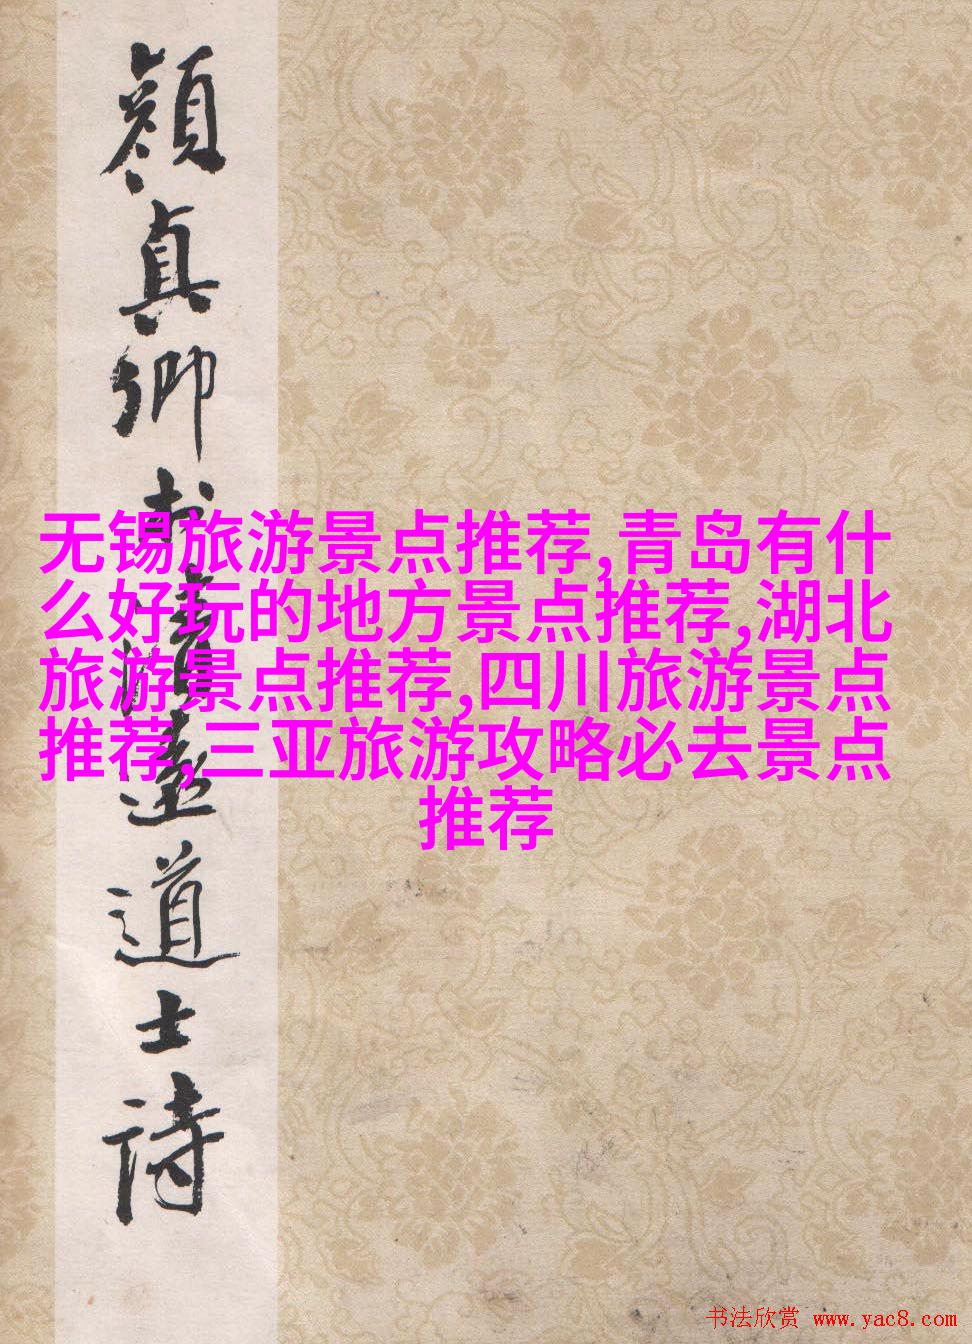 顔真卿书清遠道士诗
无锡旅游景点推荐,青岛有什
么好玩的地方景点推荐,湖北
旅游景点推荐,四川旅游景点
推荐,三亚旅游攻略必去景点
推荐
书法欣赏 www.yac8.com